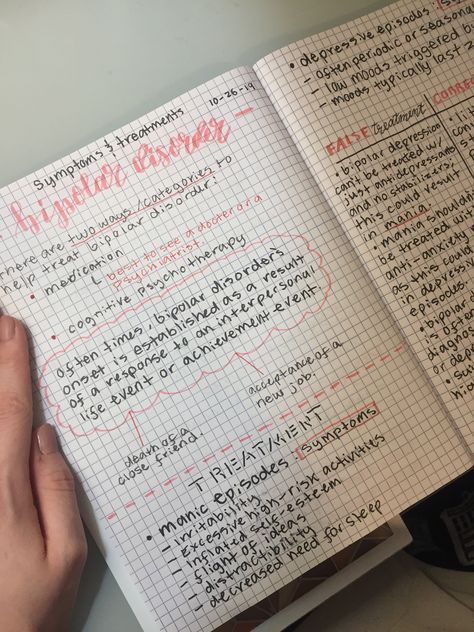 10-26-19
symptoms & treatments
bipolar disorder
there are two ways/categories to
help treat bipolar disorder:
• medication
↳ best to see a doctor or a
psychiatrist.
• cognitive psychotherapy
often times, bipolar disorder's
onset is established as a result
of a response to an interpersonal
life event or achievement event.
death of a
close friend.
acceptance of a
new job.
TREATMENT
• manic episodes: symptoms
- irritability
- Excessive high-risk activities
- inflated self-esteem
- flight of ideas
- distractibility
- decreased need for sleep
• depressive episodes:
- often periodic or seasonal
- low moods triggered
- moods typically last
FALSE treatment
• bipolar depression
can't be treated w/
just antidepressants
and no stabilizers.
this could result
in mania.
• mania should
be treated w/
anti-anxiety
as this could
in depressi
episodes.
• bipolar
is often
diagno
or dea
• sui
hi
CORRE